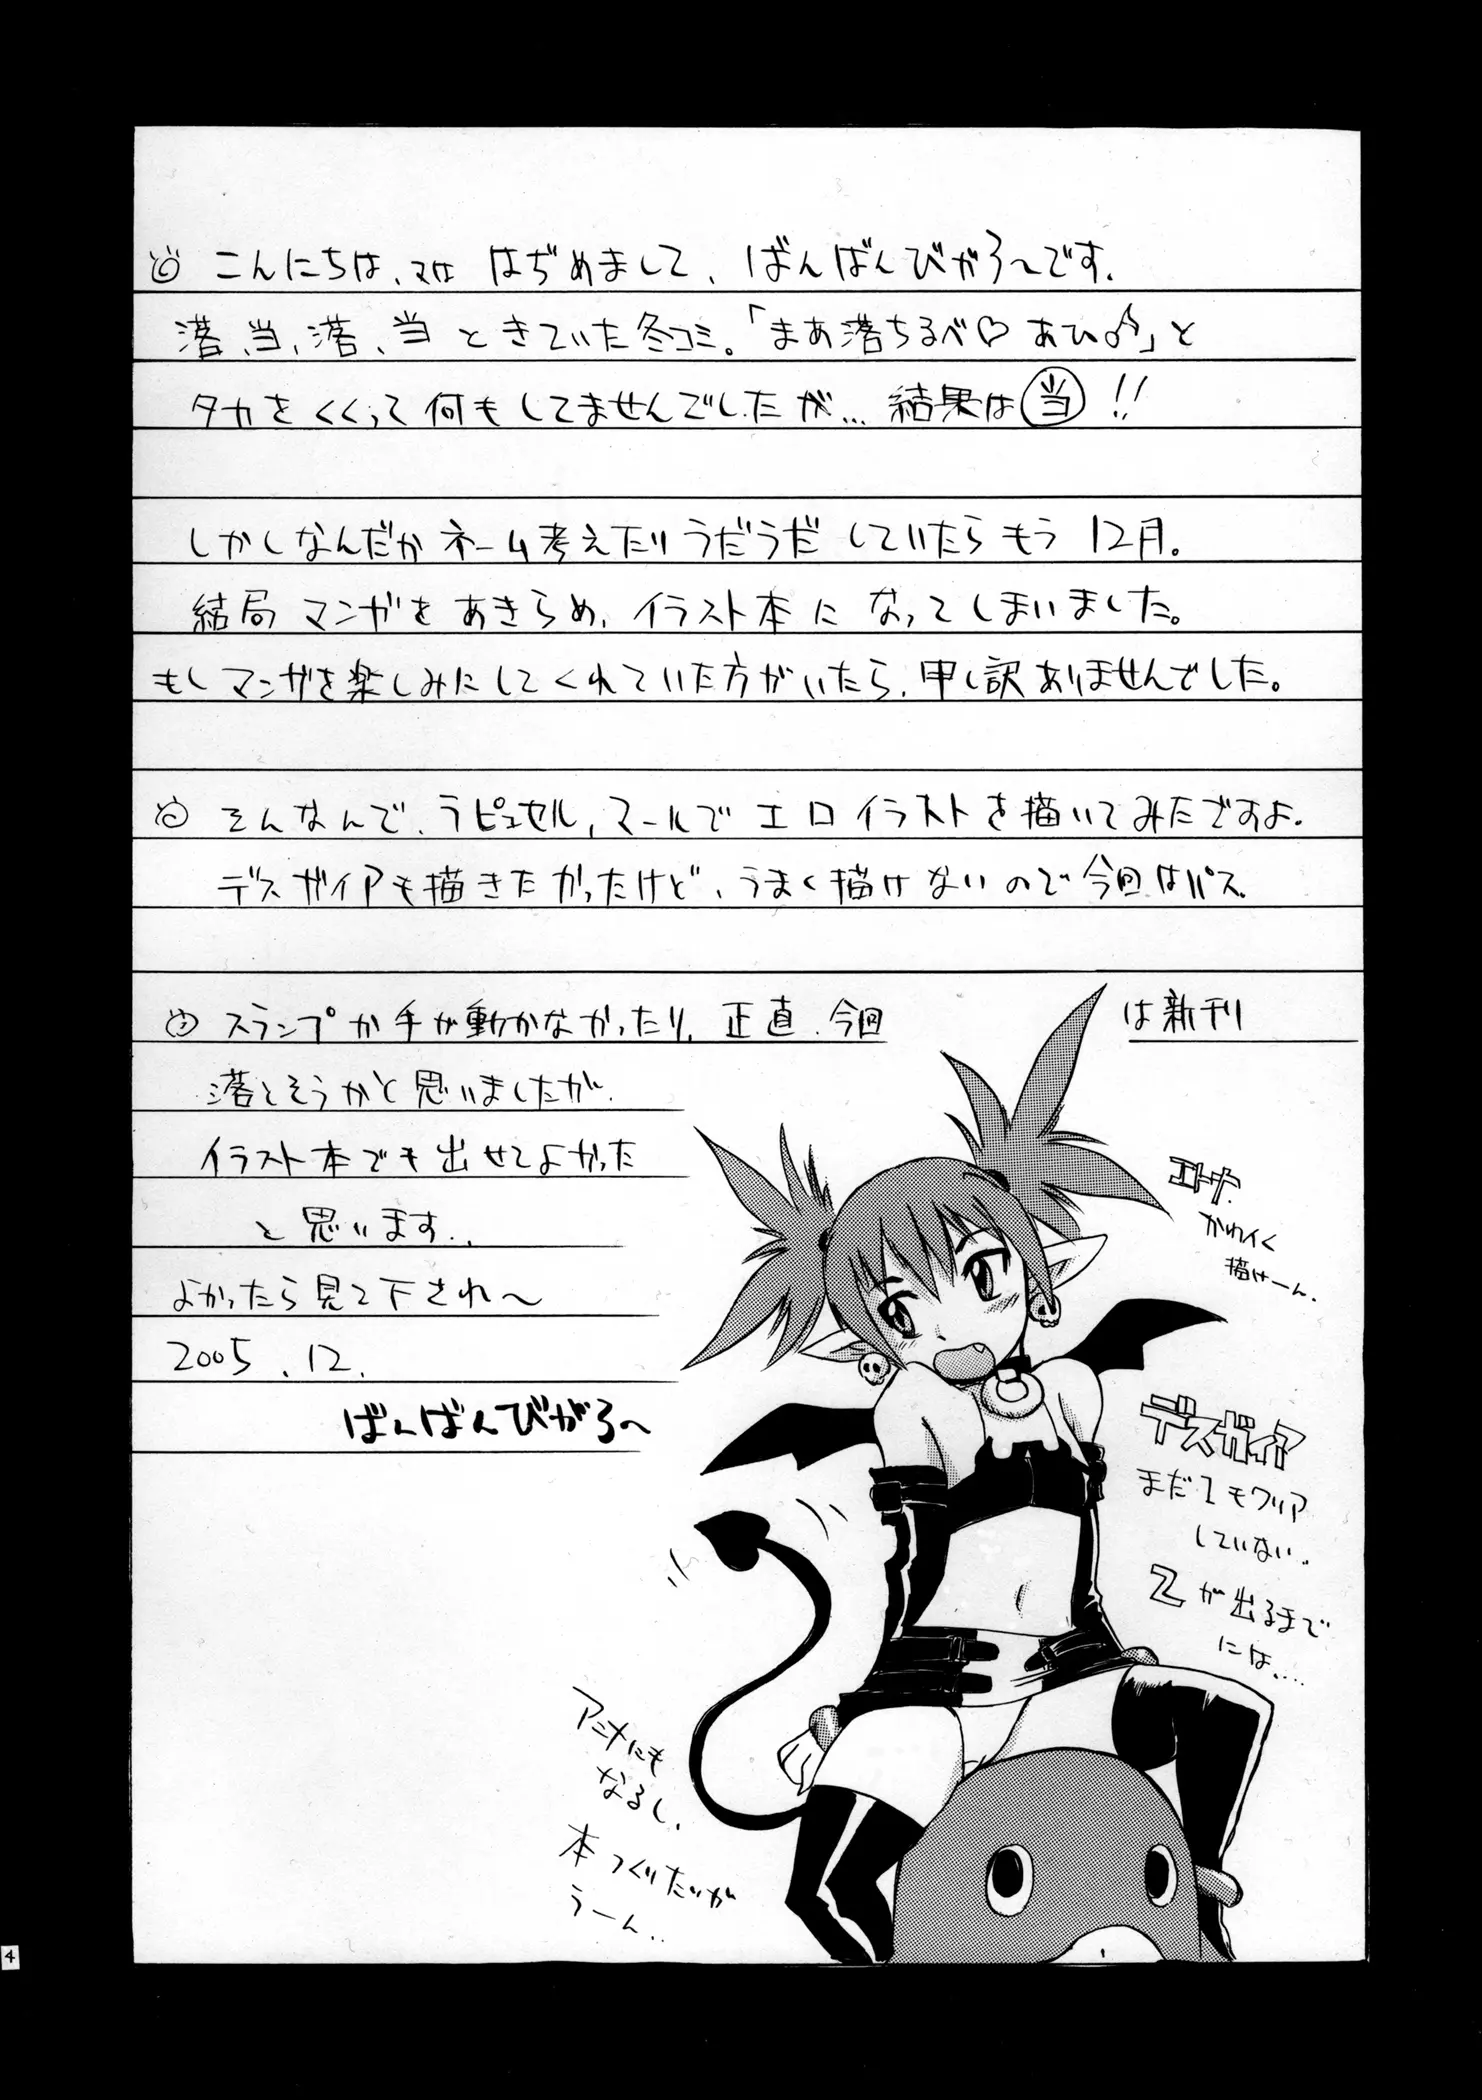 こんにちは、又は はぢめまして、ばんばんびがろ〜です。
落、当、落、当 ときていた冬コミ。「まあ落ちるべ♡ あひょ」と
タカをくくって何もしてませんでしたが… 結果は当!!
しかしなんだかネーム考えたりうだうだしていたらもう12月。
結局マンガをあきらめ、イラスト本になってしまいました。
もしマンガを楽しみにしてくれていた方がいたら、申し訳ありませんでした。
そんなんで、ラピュセル、マールでエロイラストを描いてみたですよ。
デスガイアも描きたかったけど、うまく描けないので今回はパス
スランプか手が動かなかったり、正直、今回は新刊
落とそうかと思いましたが、
イラスト本でも出せてよかった
と思います..
よかったら見て下され〜
2005.12.
ばんばんびがろ〜
エトナ、
かわイく
描けーん。
デスガイア
まだ1もクリア
していない。
2が出るまで
には....
アニメにも
なるし、
本つくりたいが
うーん..
4